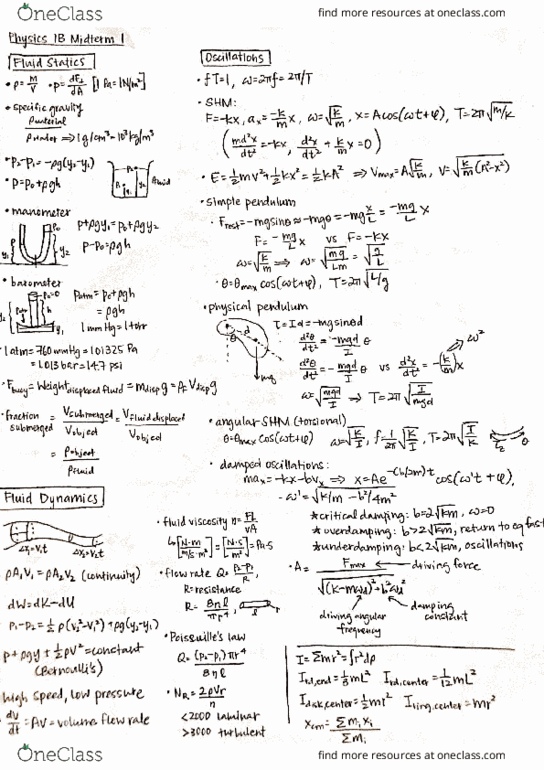 OneClass
find more resources at oneclass.com
Physics 1B Midterm 1
Fluid Statics
• ρ = m/V • p = dF⊥/dA [1 Pa = 1 N/m²]
• specific gravity
ρmaterial/ρwater ⇒ 1 g/cm³ = 10³ kg/m³
• P₂-P₁ = -ρg(y₂-y₁)
• P = P₀ + ρgh
fluid
• manometer
P + ρgy₁ = P₀ + ρgy₂
P-P₀ = ρgh
• barometer
P₀=0
Patm = P₀ + ρgh
= ρgh
1 mmHg = 1 torr
1 atm = 760 mmHg = 101325 Pa
= 1.013 bar = 14.7 psi
• Fbuoy = Weight displaced fluid = mdisp g = ρF Vdisp g
• fraction submerged = Vsubmerged/Vobject = Vfluid displaced/Vobject
= ρobject/ρfluid
Fluid Dynamics
Δx₁=V₁t
Δx₂=V₂t
ρA₁V₁ = ρA₂V₂ (continuity)
dW = dK-dU
P₁-P₂ = ½ρ(V₂²-V₁²) + ρg(y₂-y₁)
P + ρgy + ½ρV² = constant
(Bernoulli's)
high speed, low pressure
dV/dt = AV = volume flow rate
• fluid viscosity η = FL/VA
[N·m/m/s·m²] = [N·S/m²] = Pa·S
• flow rate Q = P₂-P₁/R,
R = resistance
R = 8ηl/πr⁴
• Poissuille's law
Q = (P₂-P₁)πr⁴/8ηl
• NR = 2ρVr/η
<2000 laminar
>3000 turbulent
Oscillations
• fT=1, ω=2πf=2π/T
• SHM:
F=-kx, ax=-k/m x, ω=√k/m, x=Acos(ωt+φ), T=2π√m/k
(md²x/dt² = -kx, d²x/dt² + k/m x = 0)
• E = ½mv² + ½kx² = ½kA² ⇒ Vmax = A√k/m, V = √k/m(A²-x²)
• simple pendulum
Frest = -mgsinθ ≈ -mgθ = -mg x/L = -mg/L x
F = -mg/L x vs F = -kx
ω = √k/m ⇒ ω = √mg/Lm = √g/L
θ = θmax cos(ωt+φ), T = 2π√L/g
• physical pendulum
τ = Iα = -mgsinθd
d²θ/dt² = -mgd/I θ
d²θ/dt² = -mgd/I θ vs d²x/dt² = -(k/m)x
ω²
ω = √mgd/I ⇒ T = 2π√I/mgd
mg
• angular SHM (torsional)
θ = θmax cos(ωt+φ) ω = √K/I, f = 1/2π √K/I, T = 2π√I/K
• damped oscillations:
max = -kx-bvx ⇒ x = Ae^-(b/2m)t cos(ω't+φ),
- ω' = √k/m - b²/4m²
*critical damping: b=2√km, ω=0
*overdamping: b>2√km, return to eq fast
*underdamping: b<2√km, oscillations
• A = Fmax/√(k-mωd²)²+b²ωd²
driving force
driving angular frequency
damping constant
I = Σmr² = ∫r²dρ
Ird,end = ⅓mL² Ird,center = 1/12 mL²
Idisk,center = ½mr² Iring,center = mr²
xcm = Σmᵢxᵢ/Σmᵢ
OneClass
find more resources at oneclass.com